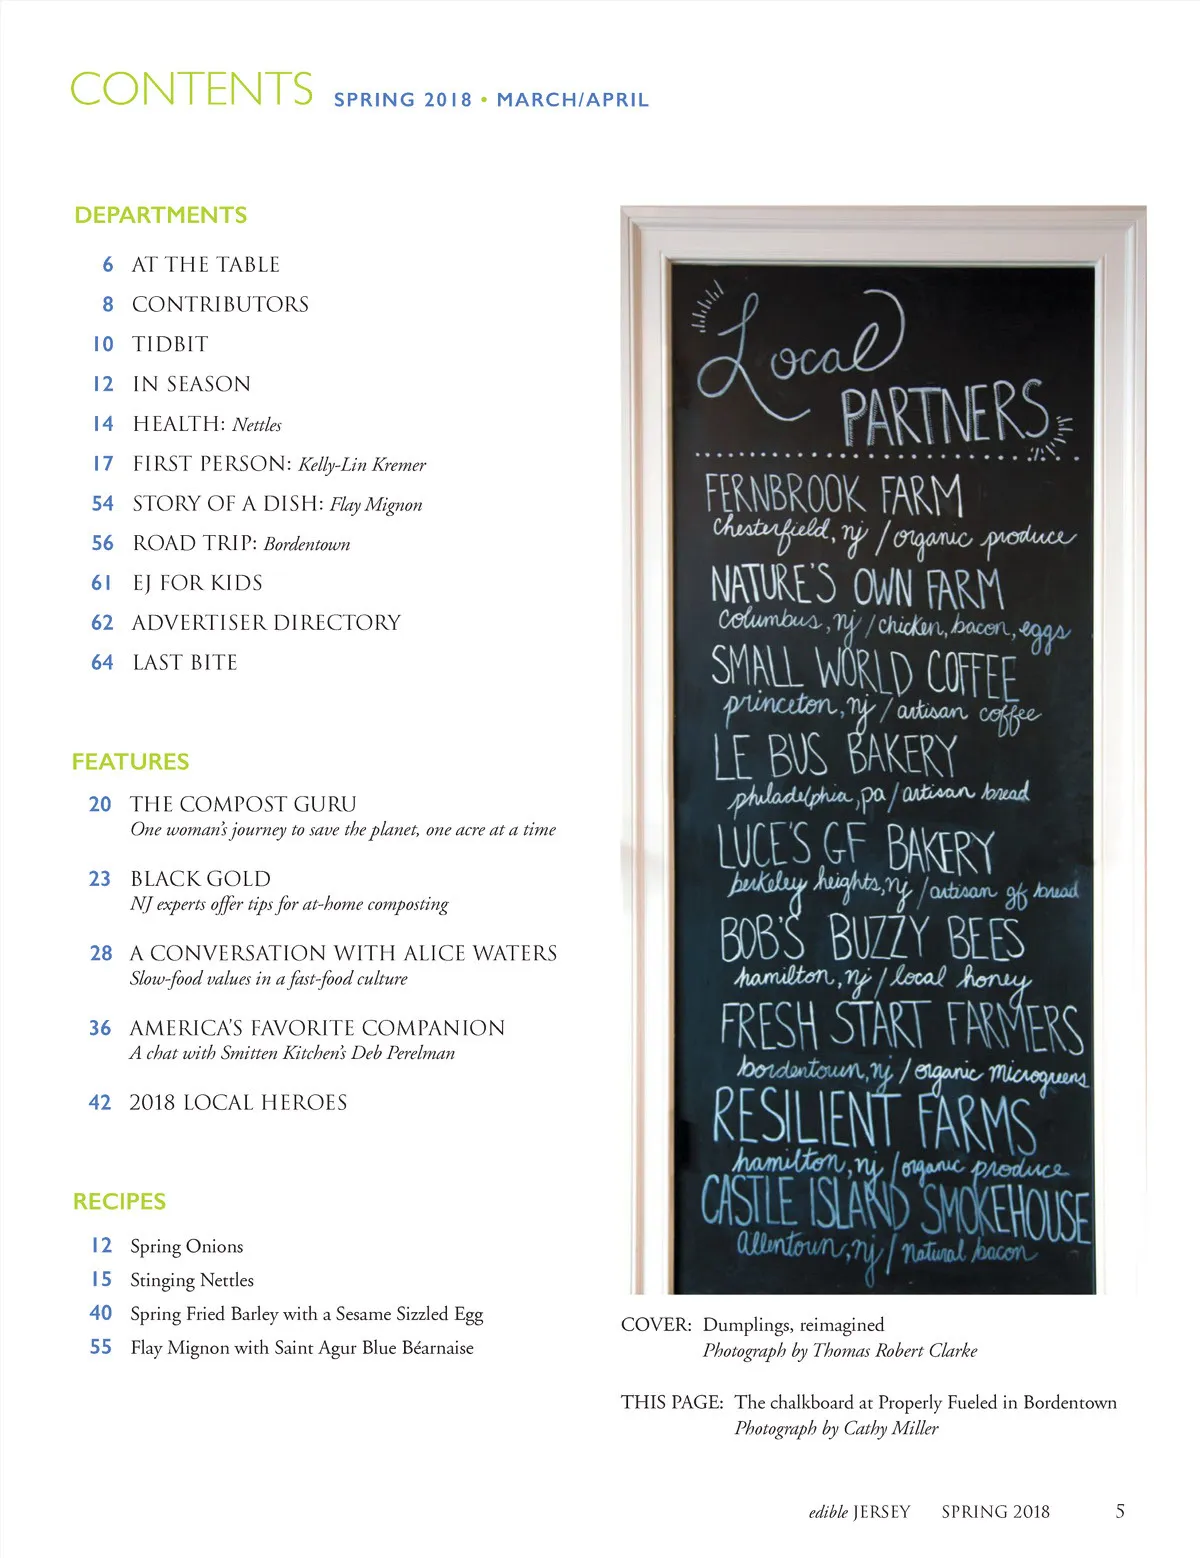 CONTENTS SPRING 2018 • MARCH/APRIL
DEPARTMENTS
6 AT THE TABLE
8 CONTRIBUTORS
10 TIDBIT
12 IN SEASON
14 HEALTH: Nettles
17 FIRST PERSON: Kelly-Lin Kremer
54 STORY OF A DISH: Flay Mignon
56 ROAD TRIP: Bordentown
61 EJ FOR KIDS
62 ADVERTISER DIRECTORY
64 LAST BITE
FEATURES
20 THE COMPOST GURU
One woman's journey to save the planet, one acre at a time
23 BLACK GOLD
NJ experts offer tips for at-home composting
28 A CONVERSATION WITH ALICE WATERS
Slow-food values in a fast-food culture
36 AMERICA'S FAVORITE COMPANION
A chat with Smitten Kitchen's Deb Perelman
42 2018 LOCAL HEROES
RECIPES
12 Spring Onions
15 Stinging Nettles
40 Spring Fried Barley with a Sesame Sizzled Egg
55 Flay Mignon with Saint Agur Blue Béarnaise
Local
PARTNERS
FERNBROOK FARM
chesterfield, nj / organic produce
NATURE'S OWN FARM
columbus, nj / chicken, bacon, eggs
SMALL WORLD COFFEE
princeton, nj / artisan coffee
LE BUS BAKERY
philadelphia, pa / artisan bread
LUCE'S GF BAKERY
berkeley heights, nj / artisan gf bread
BOB'S BUZZY BEES
hamilton, nj / local honey
FRESH START FARMERS
bordentown, nj / organic microgreens
RESILIENT FARMS
hamilton, nj / organic produce
CASTLE ISLAND SMOKEHOUSE
allentown, nj / natural bacon
COVER: Dumplings, reimagined
Photograph by Thomas Robert Clarke
THIS PAGE: The chalkboard at Properly Fueled in Bordentown
Photograph by Cathy Miller
edible JERSEY SPRING 2018 5